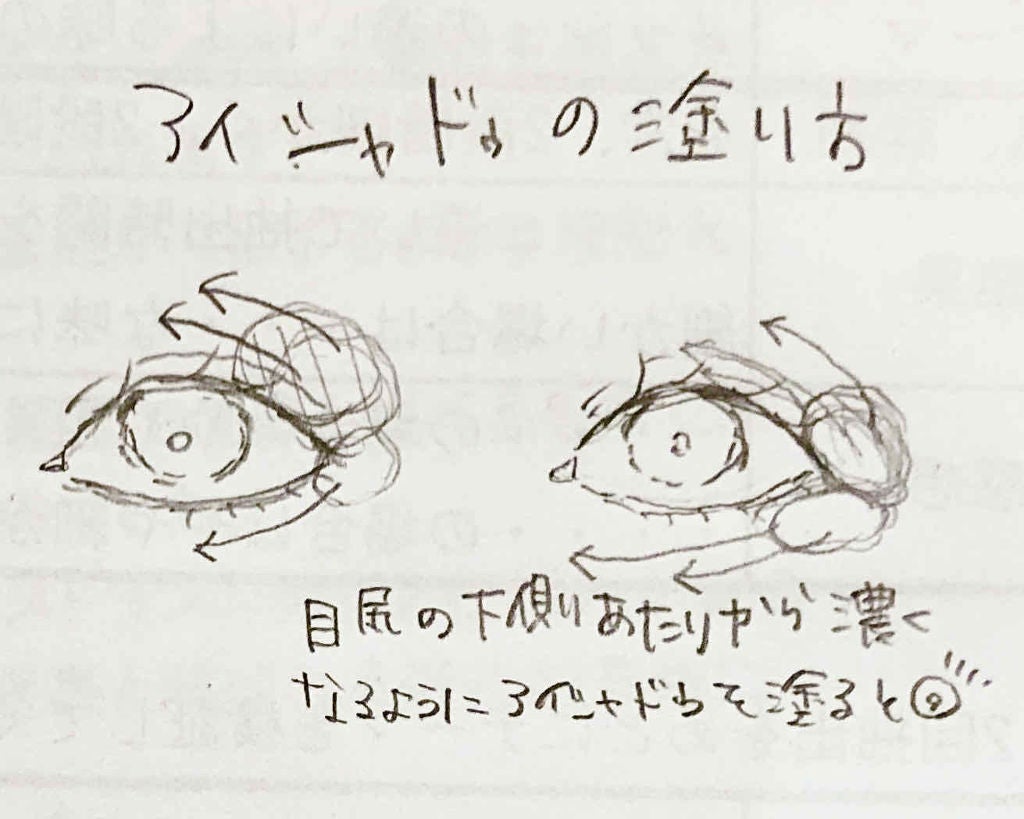 アイシャドウの塗り方
目尻の下側りあたりから濃く
なるようにアイシャドウを塗ると◎